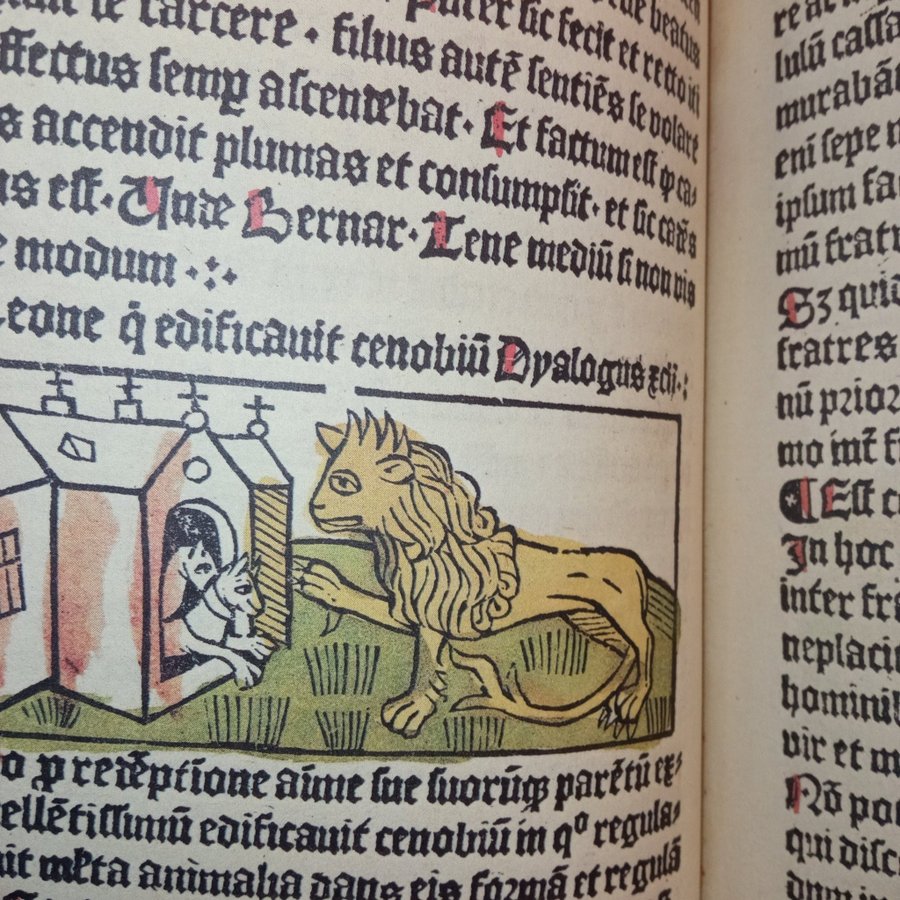 carcere · filius autē sentiēs se volare
ffectus semp ascendebat · Et factum est ꝙ ca⸗
s accendit plumas et consumpsit · et sic cadēs
us est · Unde Bernar · Tene mediū si non vis
e modum
Leone q̇ edificavit cenobiū Dyalogus xcii
o p redēptione aīme sue suorūqꝫ parētū ex⸗
cellētissimū edificavit cenobiū in qº regula⸗
animalia dans eis formā et regulā
re
lulū cassa
murabā
eni sepe
ipsum fa
mū fratr
Sꝫ quid
fratres
nū prior
mo int̄
¶ Est
In hoc
inter fr
neplacit
hominib
vir et
Nō po
qui disc